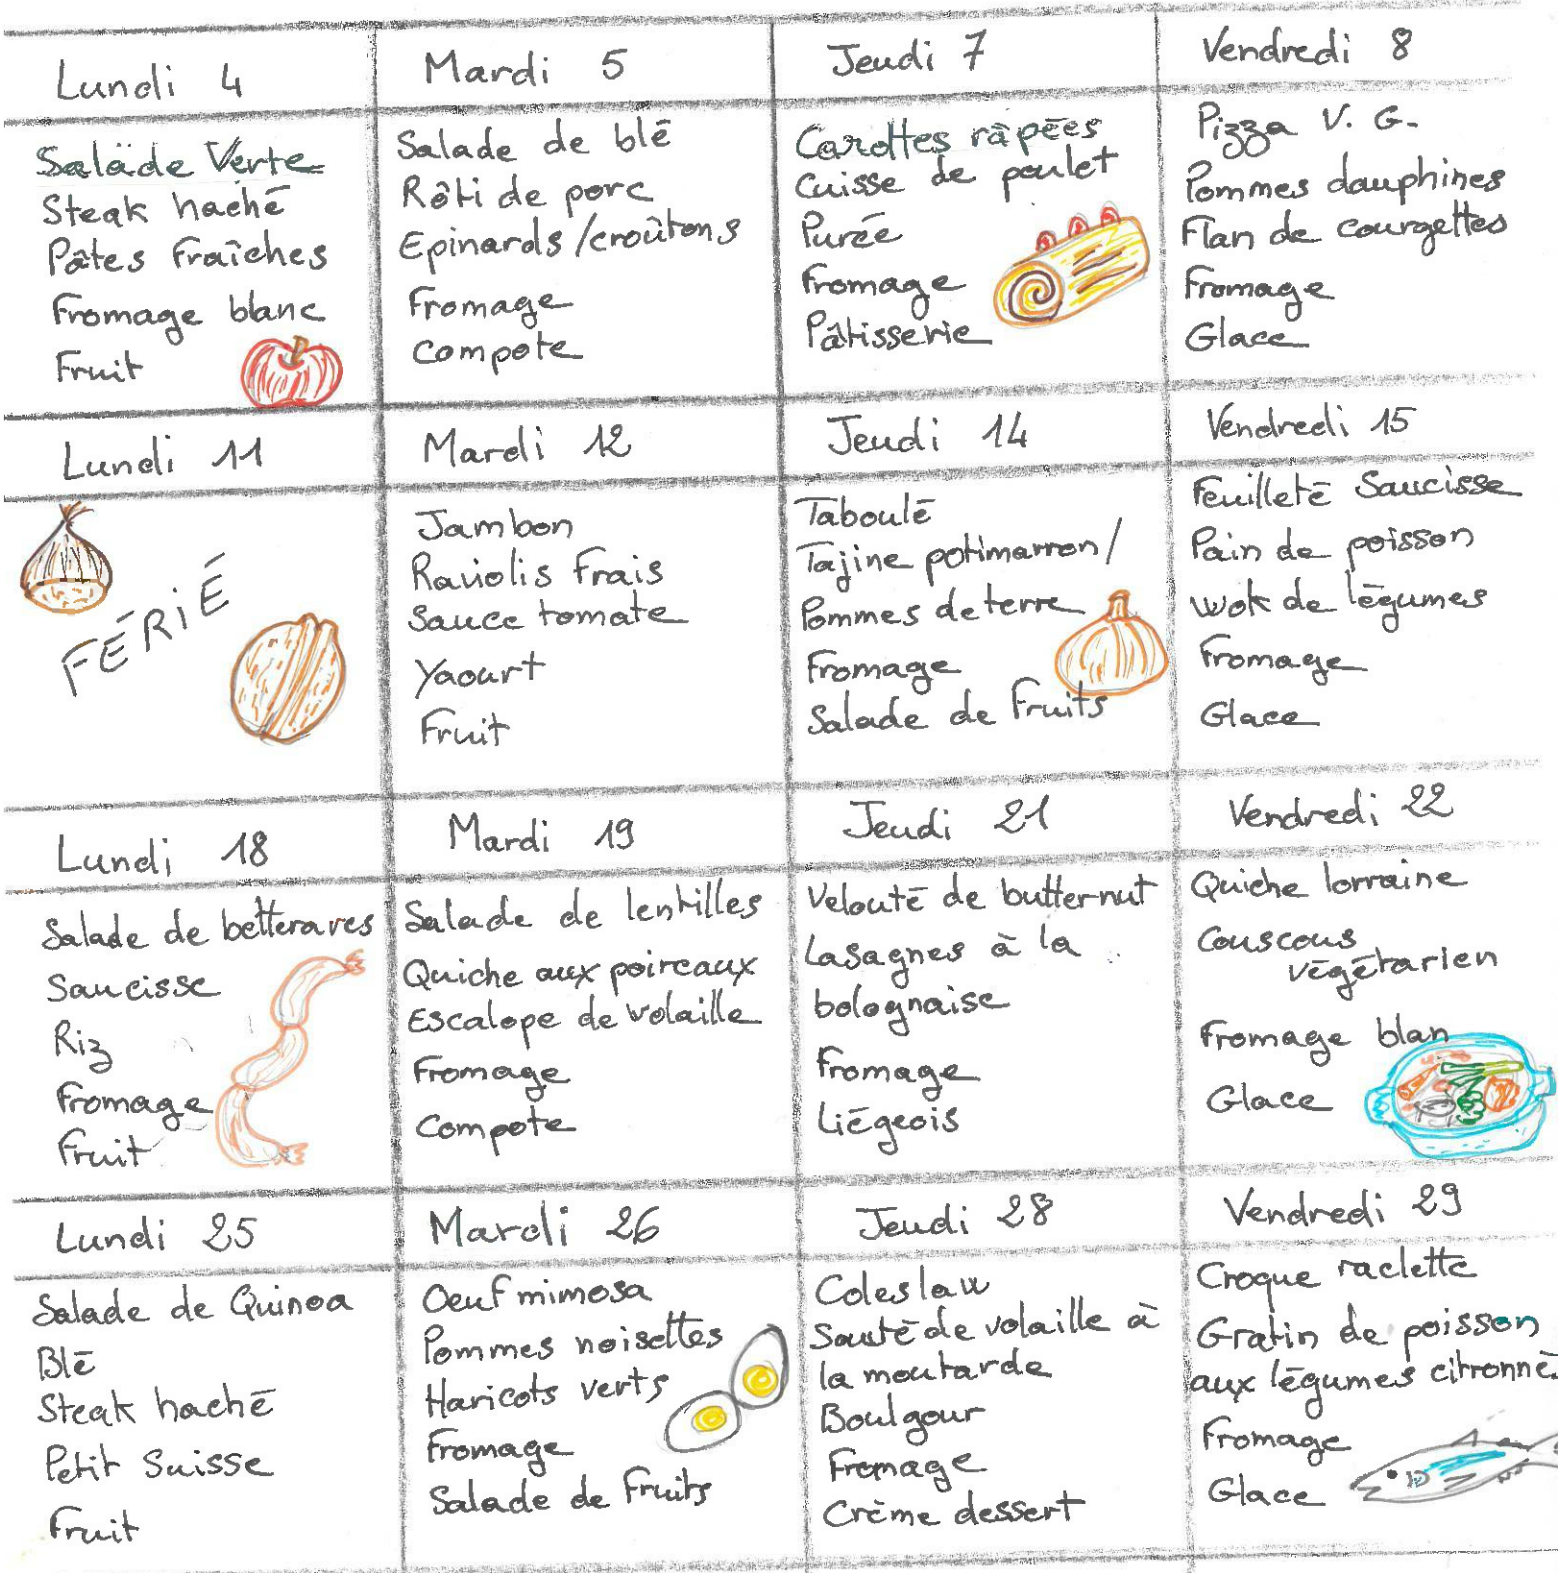 Lundi 4
Mardi 5
Jeudi 7
Vendredi 8
Salade Verte
Steak haché
Pâtes Fraîches
Fromage blanc
Fruit
Salade de blé
Rôti de porc
Epinards/croûtons
Fromage
Compote
Carottes râpées
Cuisse de poulet
Purée
Fromage
Pâtisserie
Pizza V. G.
Pommes dauphines
Flan de courgettes
Fromage
Glace
Lundi 11
Mardi 12
Jeudi 14
Vendredi 15
FÉRIÉ
Jambon
Raviolis Frais
Sauce tomate
Yaourt
Fruit
Taboulé
Tajine potimarron/
Pommes de terre
Fromage
Salade de Fruits
Feuilleté Saucisse
Pain de poisson
Wok de légumes
Fromage
Glace
Lundi 18
Mardi 19
Jeudi 21
Vendredi 22
Salade de betteraves
Saucisse
Riz
Fromage
Fruit
Salade de lentilles
Quiche aux poireaux
Escalope de Volaille
Fromage
Compote
Velouté de butternut
Lasagnes à la
bolognaise
Fromage
Liégeois
Quiche lorraine
Couscous
végétarien
Fromage blan
Glace
Lundi 25
Mardi 26
Jeudi 28
Vendredi 29
Salade de Quinoa
Blé
Steak haché
Petit Suisse
Fruit
Oeuf mimosa
Pommes noisettes
Haricots verts
Fromage
Salade de Fruits
Coleslaw
Sauté de volaille à
la moutarde
Boulgour
Fromage
Crème dessert
Croque raclette
Gratin de poisson
aux légumes citronné
Fromage
Glace